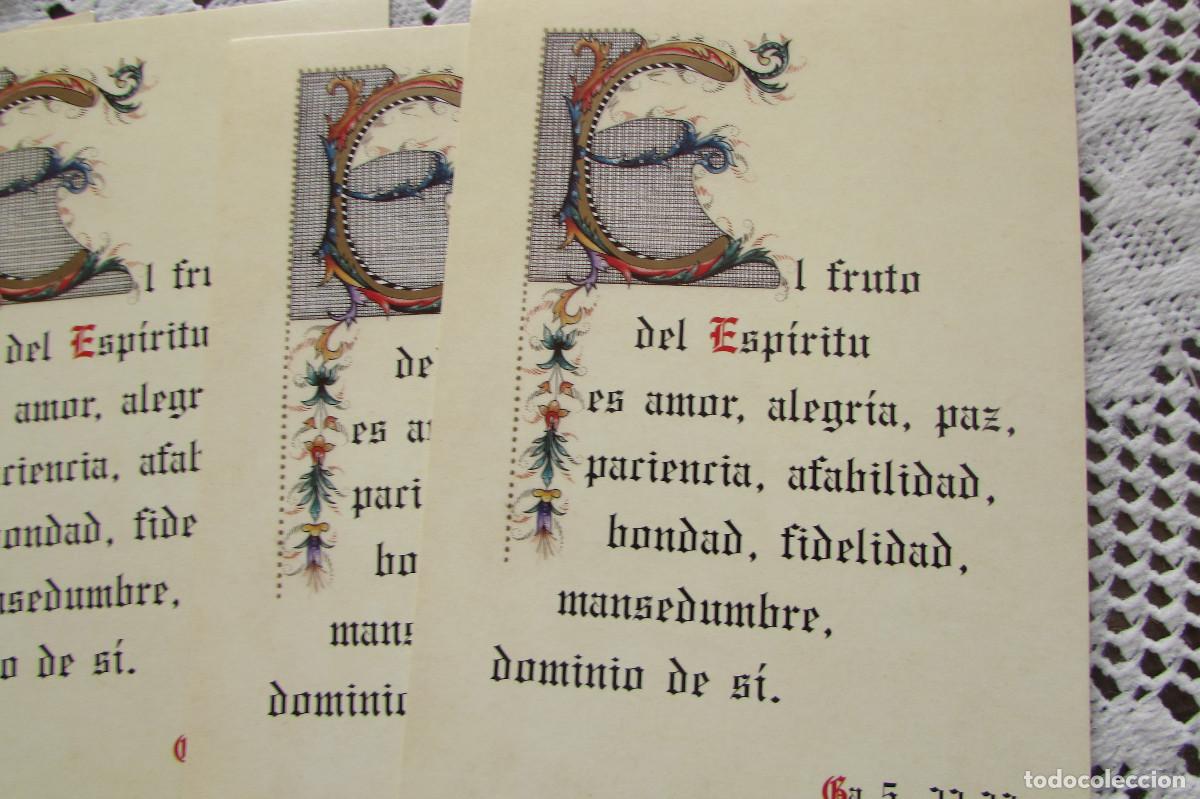 l fru
del Espíritu
amor, alegr
ciencia, afab
ondad, fide
nsedumbre,
o de sí.
de
es a
paci
bo
mans
dominio
El fruto
del Espíritu
es amor, alegría, paz,
paciencia, afabilidad,
bondad, fidelidad,
mansedumbre,
dominio de sí.
Ga 5, 22-23
todocoleccion